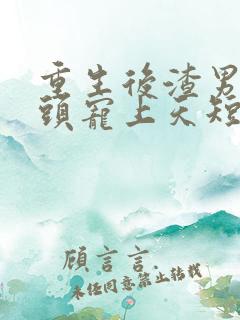 重生後渣男
頭寵上天短
顧言言.
未任同意禁止轉載